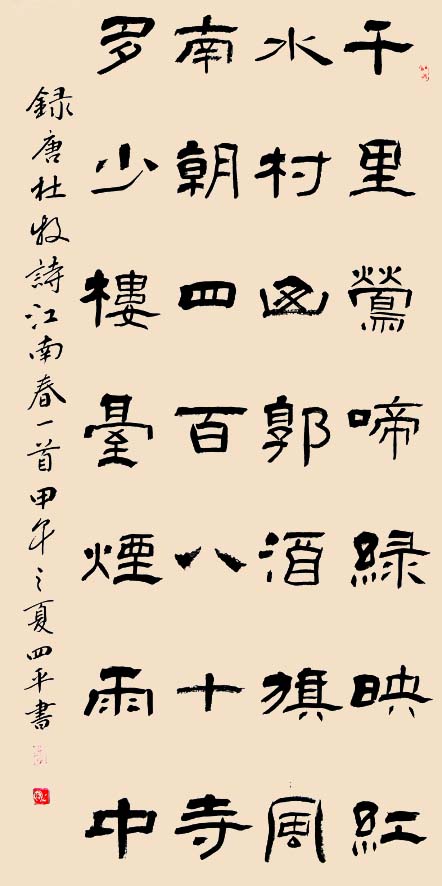 千里鶯啼緑映紅
水村山郭酒旗風
南朝四百八十寺
多少樓臺煙雨中
録唐杜牧詩江南春一首甲午之夏四平書